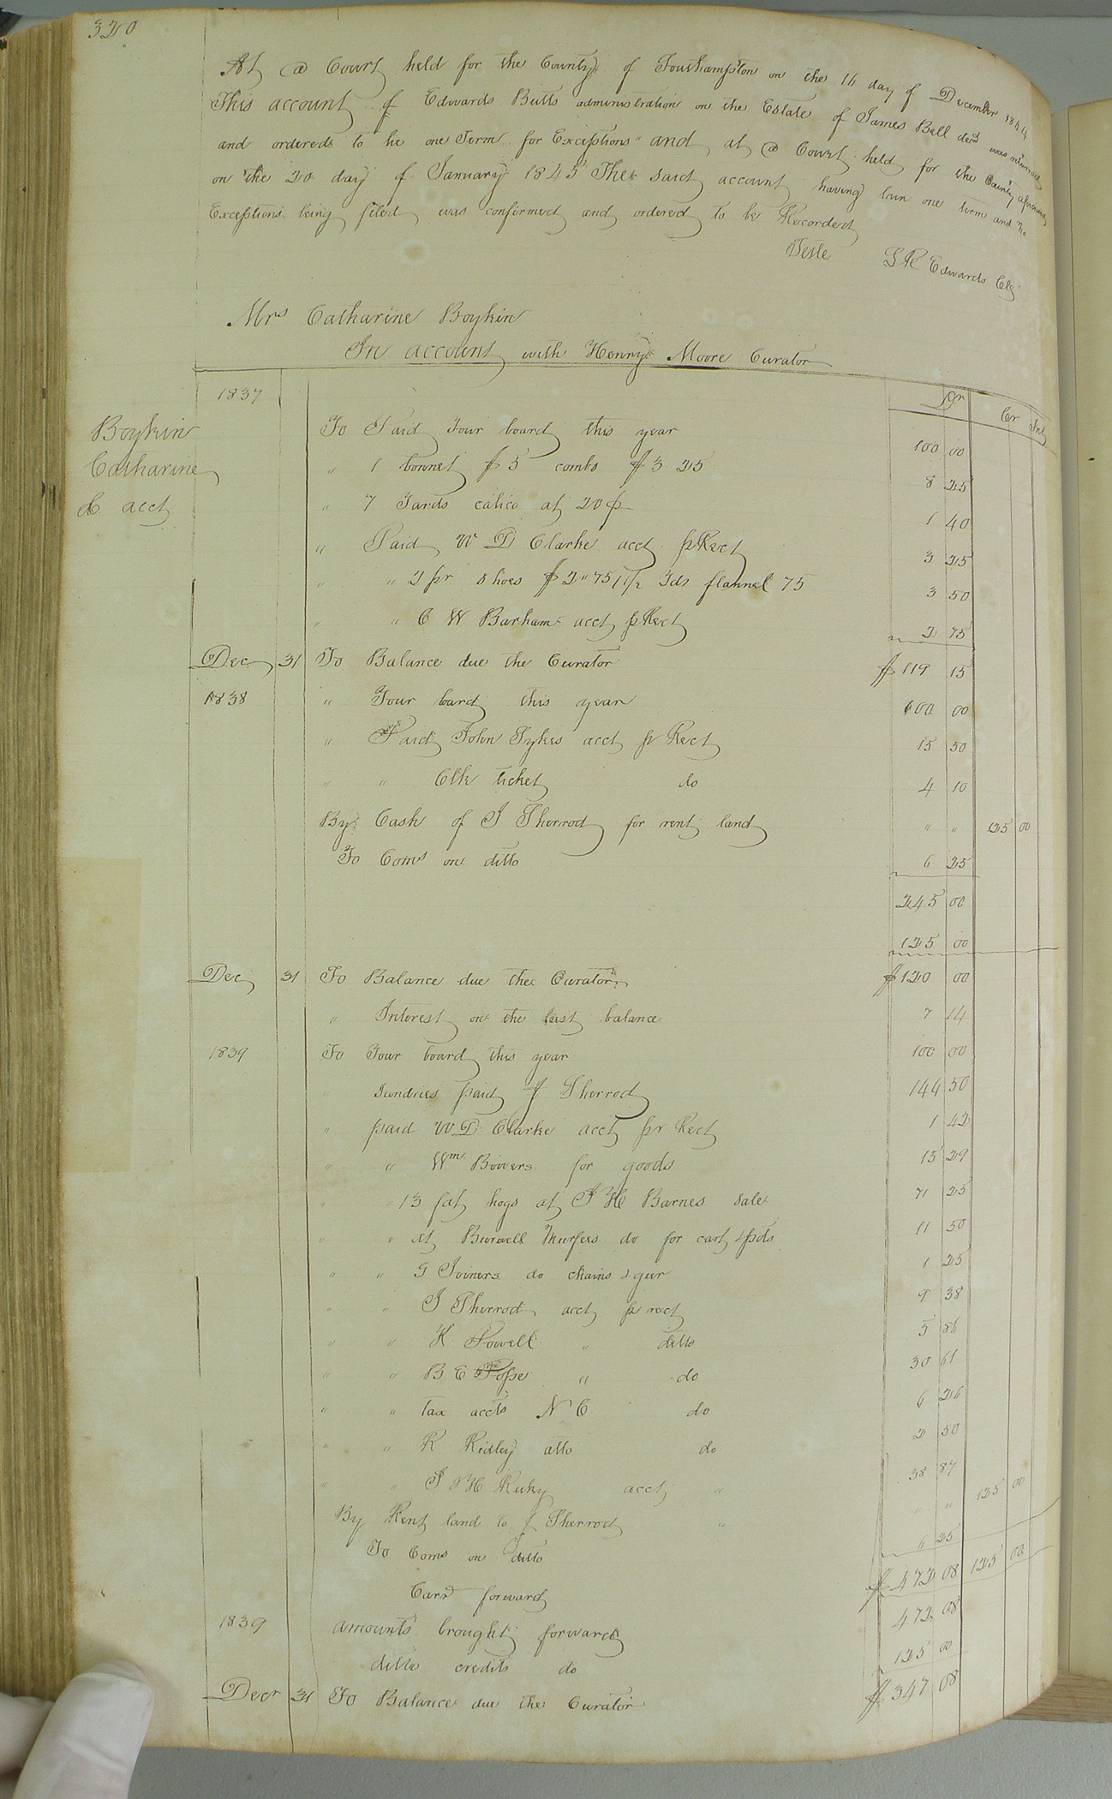 320
At a Court held for the County of Southampton on the 16 day of December 1844
This account of Edwards Butts administration on the Estate of James Bell decd was returned
and ordered to lie one Term for Exceptions and at a Court held for the County aforesaid
on the 20 day of January 1845 The said account having lain one term and no
Exceptions being filed was confirmed and ordered to be Recorded
Teste L R Edwards Clk
Mrs Catharine Boykin
In account with Henry Moore Curator
1837 Dr Cr Int
Boykin
Catharine
& acct
To Paid Your board this year 100 00
" 1 bonnet $5 combs $3 25 8 25
" 7 Yards calico at 20 1 40
" Paid W D Clarke acct pr Rect 3 25
" " 2 pr shoes $2"75 1 1/2 Yds flannel 75 3 50
" " C W Barham acct pr Rect 2 75
Dec 31 To Balance due the Curator $119 15
1838 " Your bard this year 100 00
" Paid John Sykes acct pr Rect 15 50
" " Clk ticket do 4 10
By Cash of J Sherrod for rent land " " 125 00
To Coms on ditto 6 25
245 00
125 00
Dec 31 To Balance due the Curator $120 00
" Interest on the last balance 7 14
1839 To Your board this year 100 00
" Sundries paid J Sherrod 144 50
" paid W D Clarke acct pr Rect 1 42
" " Wm Bowers for goods 15 29
" " 13 fat hogs at J H Barnes sale 71 25
" " At Burwell Murfees do for cart & pds 11 50
" " G Joiners do chains & gear 1 25
" " J Sherrod acct pr rect 9 38
" " K Powell " ditto 5 86
" " B C do 30 61
" " tax accts N C do 6 26
" " R Ridley atto do 2 50
" " J H acct " 38 87
By Rent land to J Sherrod " " " 125 00
To Coms on ditto 6 25
Card forward $472 08 125 00
1839 amounts brought forward 472 08
ditto credits do 125 00
Decr 31 To Balance due the Curator $347 08